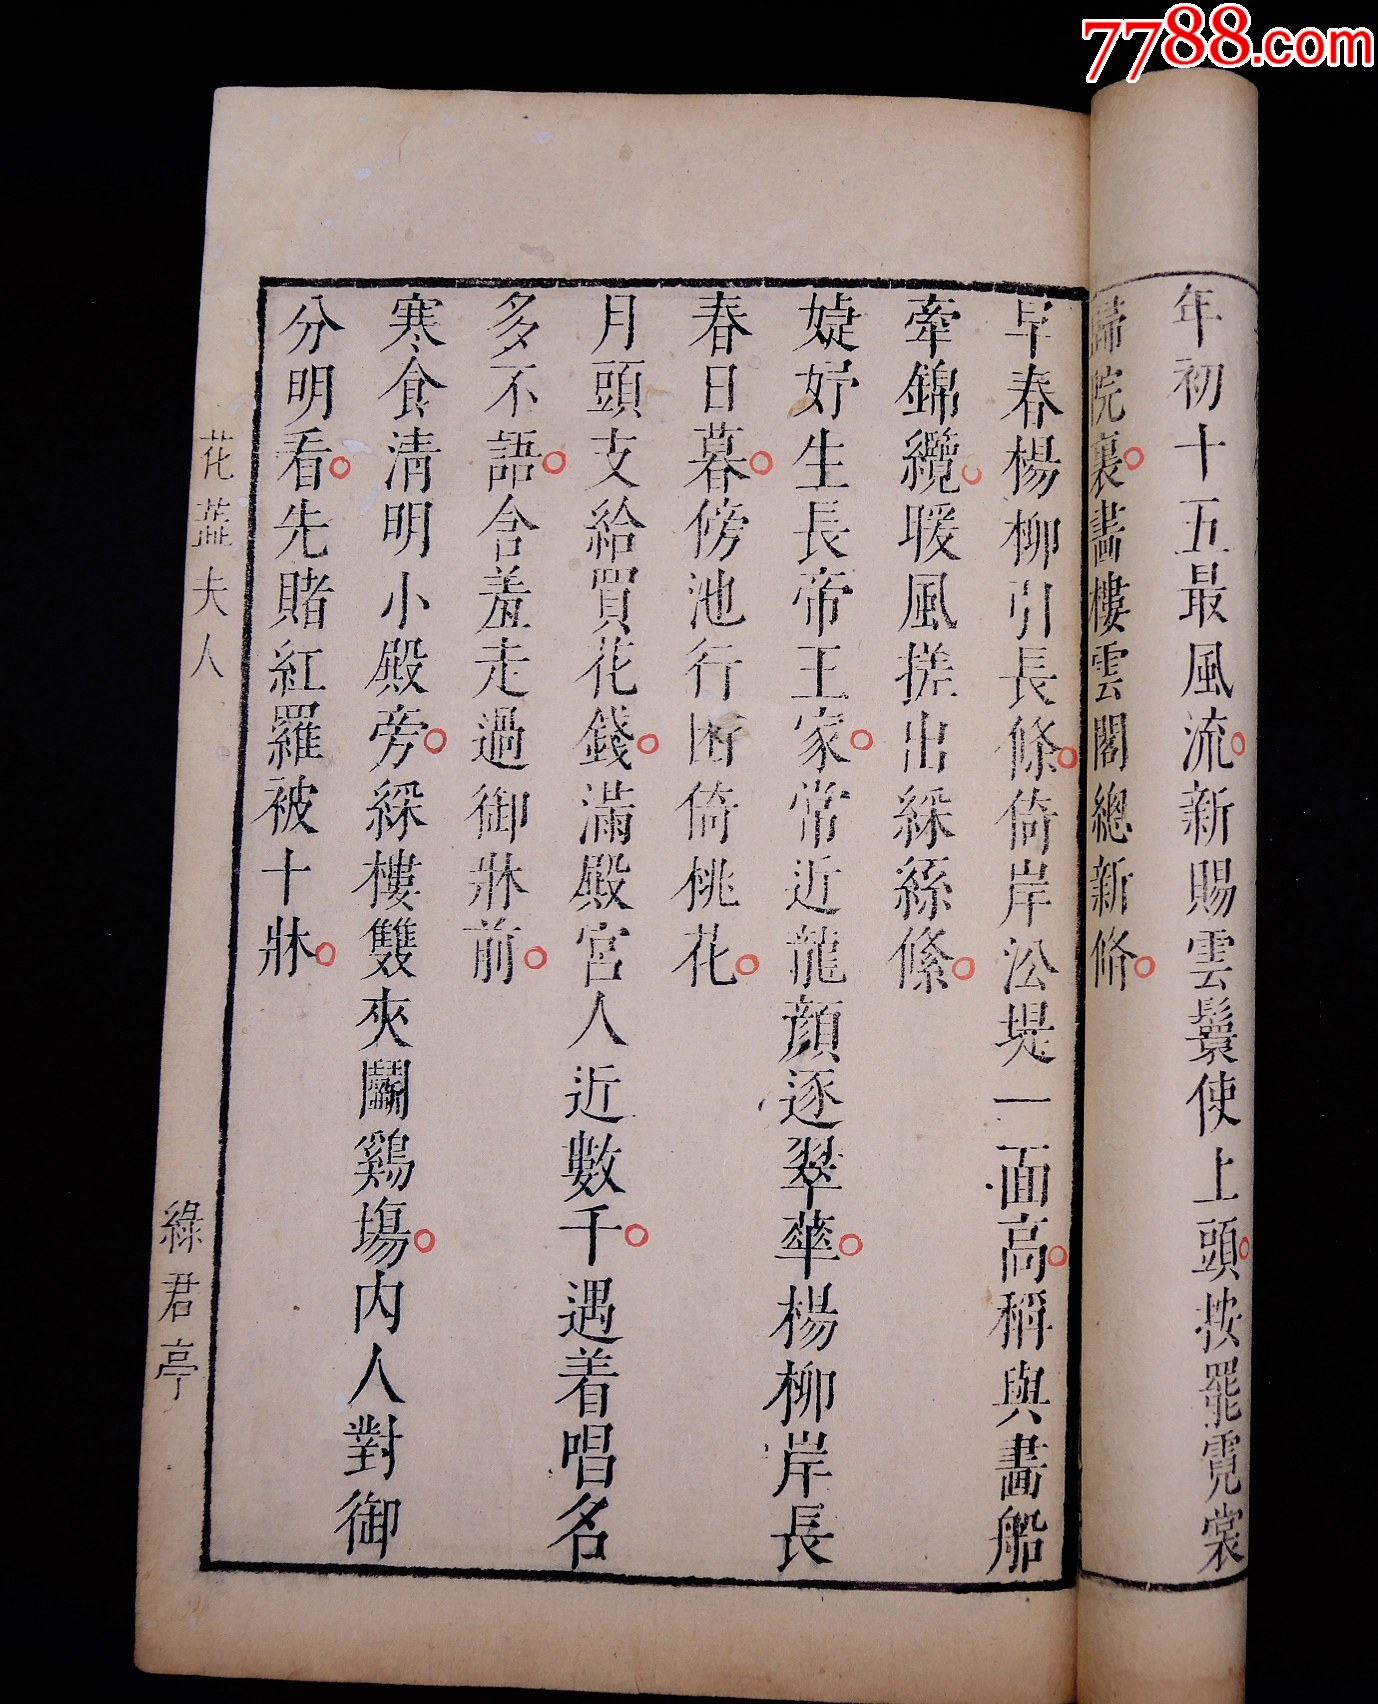 7788.com
年初十五最風流新賜雲鬟使上頭按罷霓裳
歸院裏畵樓雲閣總新脩
早春楊柳引長條倚岸㳂堤一面高稱與畵船
牽錦纜暖風搓出綵絲絛
婕妤生長帝王家常近龍顔逐翠華楊柳岸長
春日暮傍池行困倚桃花
月頭支給買花錢滿殿宮人近數千遇着唱名
多不語含羞走過御牀前
寒食清明小殿旁綵樓雙夾鬬鷄場内人對御
分明看先賭紅羅被十牀
花蕊夫人
綠君亭